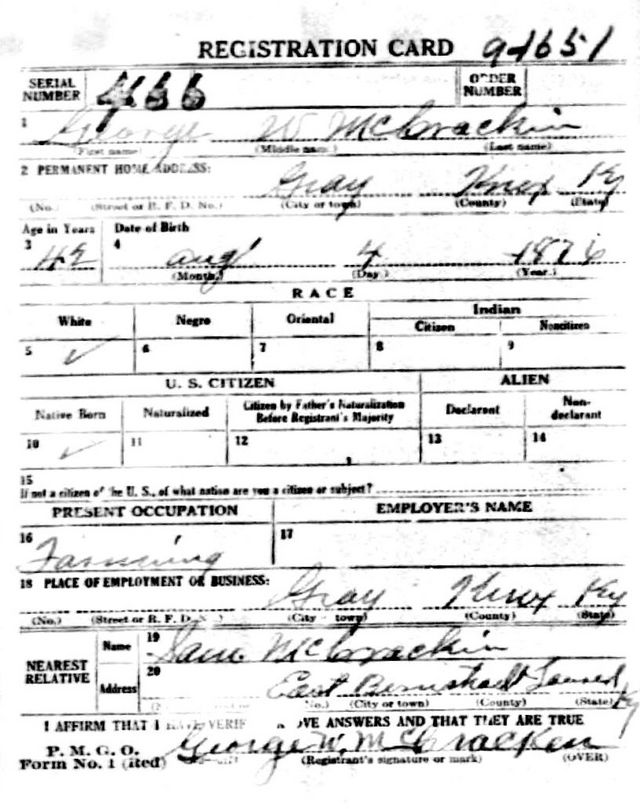 REGISTRATION CARD 9-1651
SERIAL NUMBER 4366 ORDER NUMBER
1 George W McCrackin
(First name) (Middle name) (Last name)
2 PERMANENT HOME ADDRESS: Gray Knox Ky
(No.) (Street or R. F. D. No.) (City or town) (County) (State)
Age in Years Date of Birth
3 42 4 Aug 4 1876
(Month) (Day) (Year)
RACE
White Negro Oriental Indian
Citizen Noncitizen
5 ✓ 6 7 8 9
U. S. CITIZEN ALIEN
Native Born Naturalized Citizen by Father's Naturalization Before Registrant's Majority Declarant Non-declarant
10 ✓ 11 12 13 14
15
If not a citizen of the U. S., of what nation are you a citizen or subject?
PRESENT OCCUPATION EMPLOYER'S NAME
16 Farming 17
18 PLACE OF EMPLOYMENT OR BUSINESS: Gray Knox Ky
(No.) (Street or R. F. D. (City town) (County) (State)
NEAREST RELATIVE Name 19 Sam McCrackin
Address 20 East Bernstadt Laurel Ky
No.) (City or town) (County) (State)
I AFFIRM THAT I HAVE VERIF OVE ANSWERS AND THAT THEY ARE TRUE
P. M. G. O.
Form No. 1 (ited) George W. McCracken
(Registrant's signature or mark) (OVER)